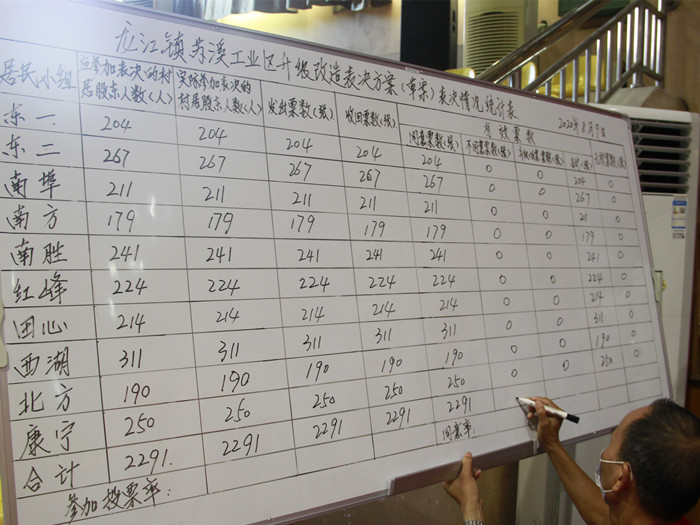 龙江镇苏溪工业区升级改造表决方案(草案)表决情况统计表
2020年8月9日
居民小组 应参加表决的村居股东人数(人) 实际参加表决的村居股东人数(人) 发出票数(张) 收回票数(张) 同意票数(张) 不同意票数(张) 合计(张) 无效票数(张)
东一 204 204 204 204 204 0 0 204 0
东二 267 267 267 267 267 0 0 267 0
南埠 211 211 211 211 211 0 0 211 0
南方 179 179 179 179 179 0 0 179 0
南胜 241 241 241 241 241 0 0 241 0
红峰 224 224 224 224 224 0 0 224 0
田心 214 214 214 214 214 0 0 214 0
西湖 311 311 311 311 311 0 0 311 0
北方 190 190 190 190 190 0 0 190 0
康宁 250 250 250 250 250 0 0 250 0
合计 2291. 2291 2291 2291 2291
参加投票率: 同意率: